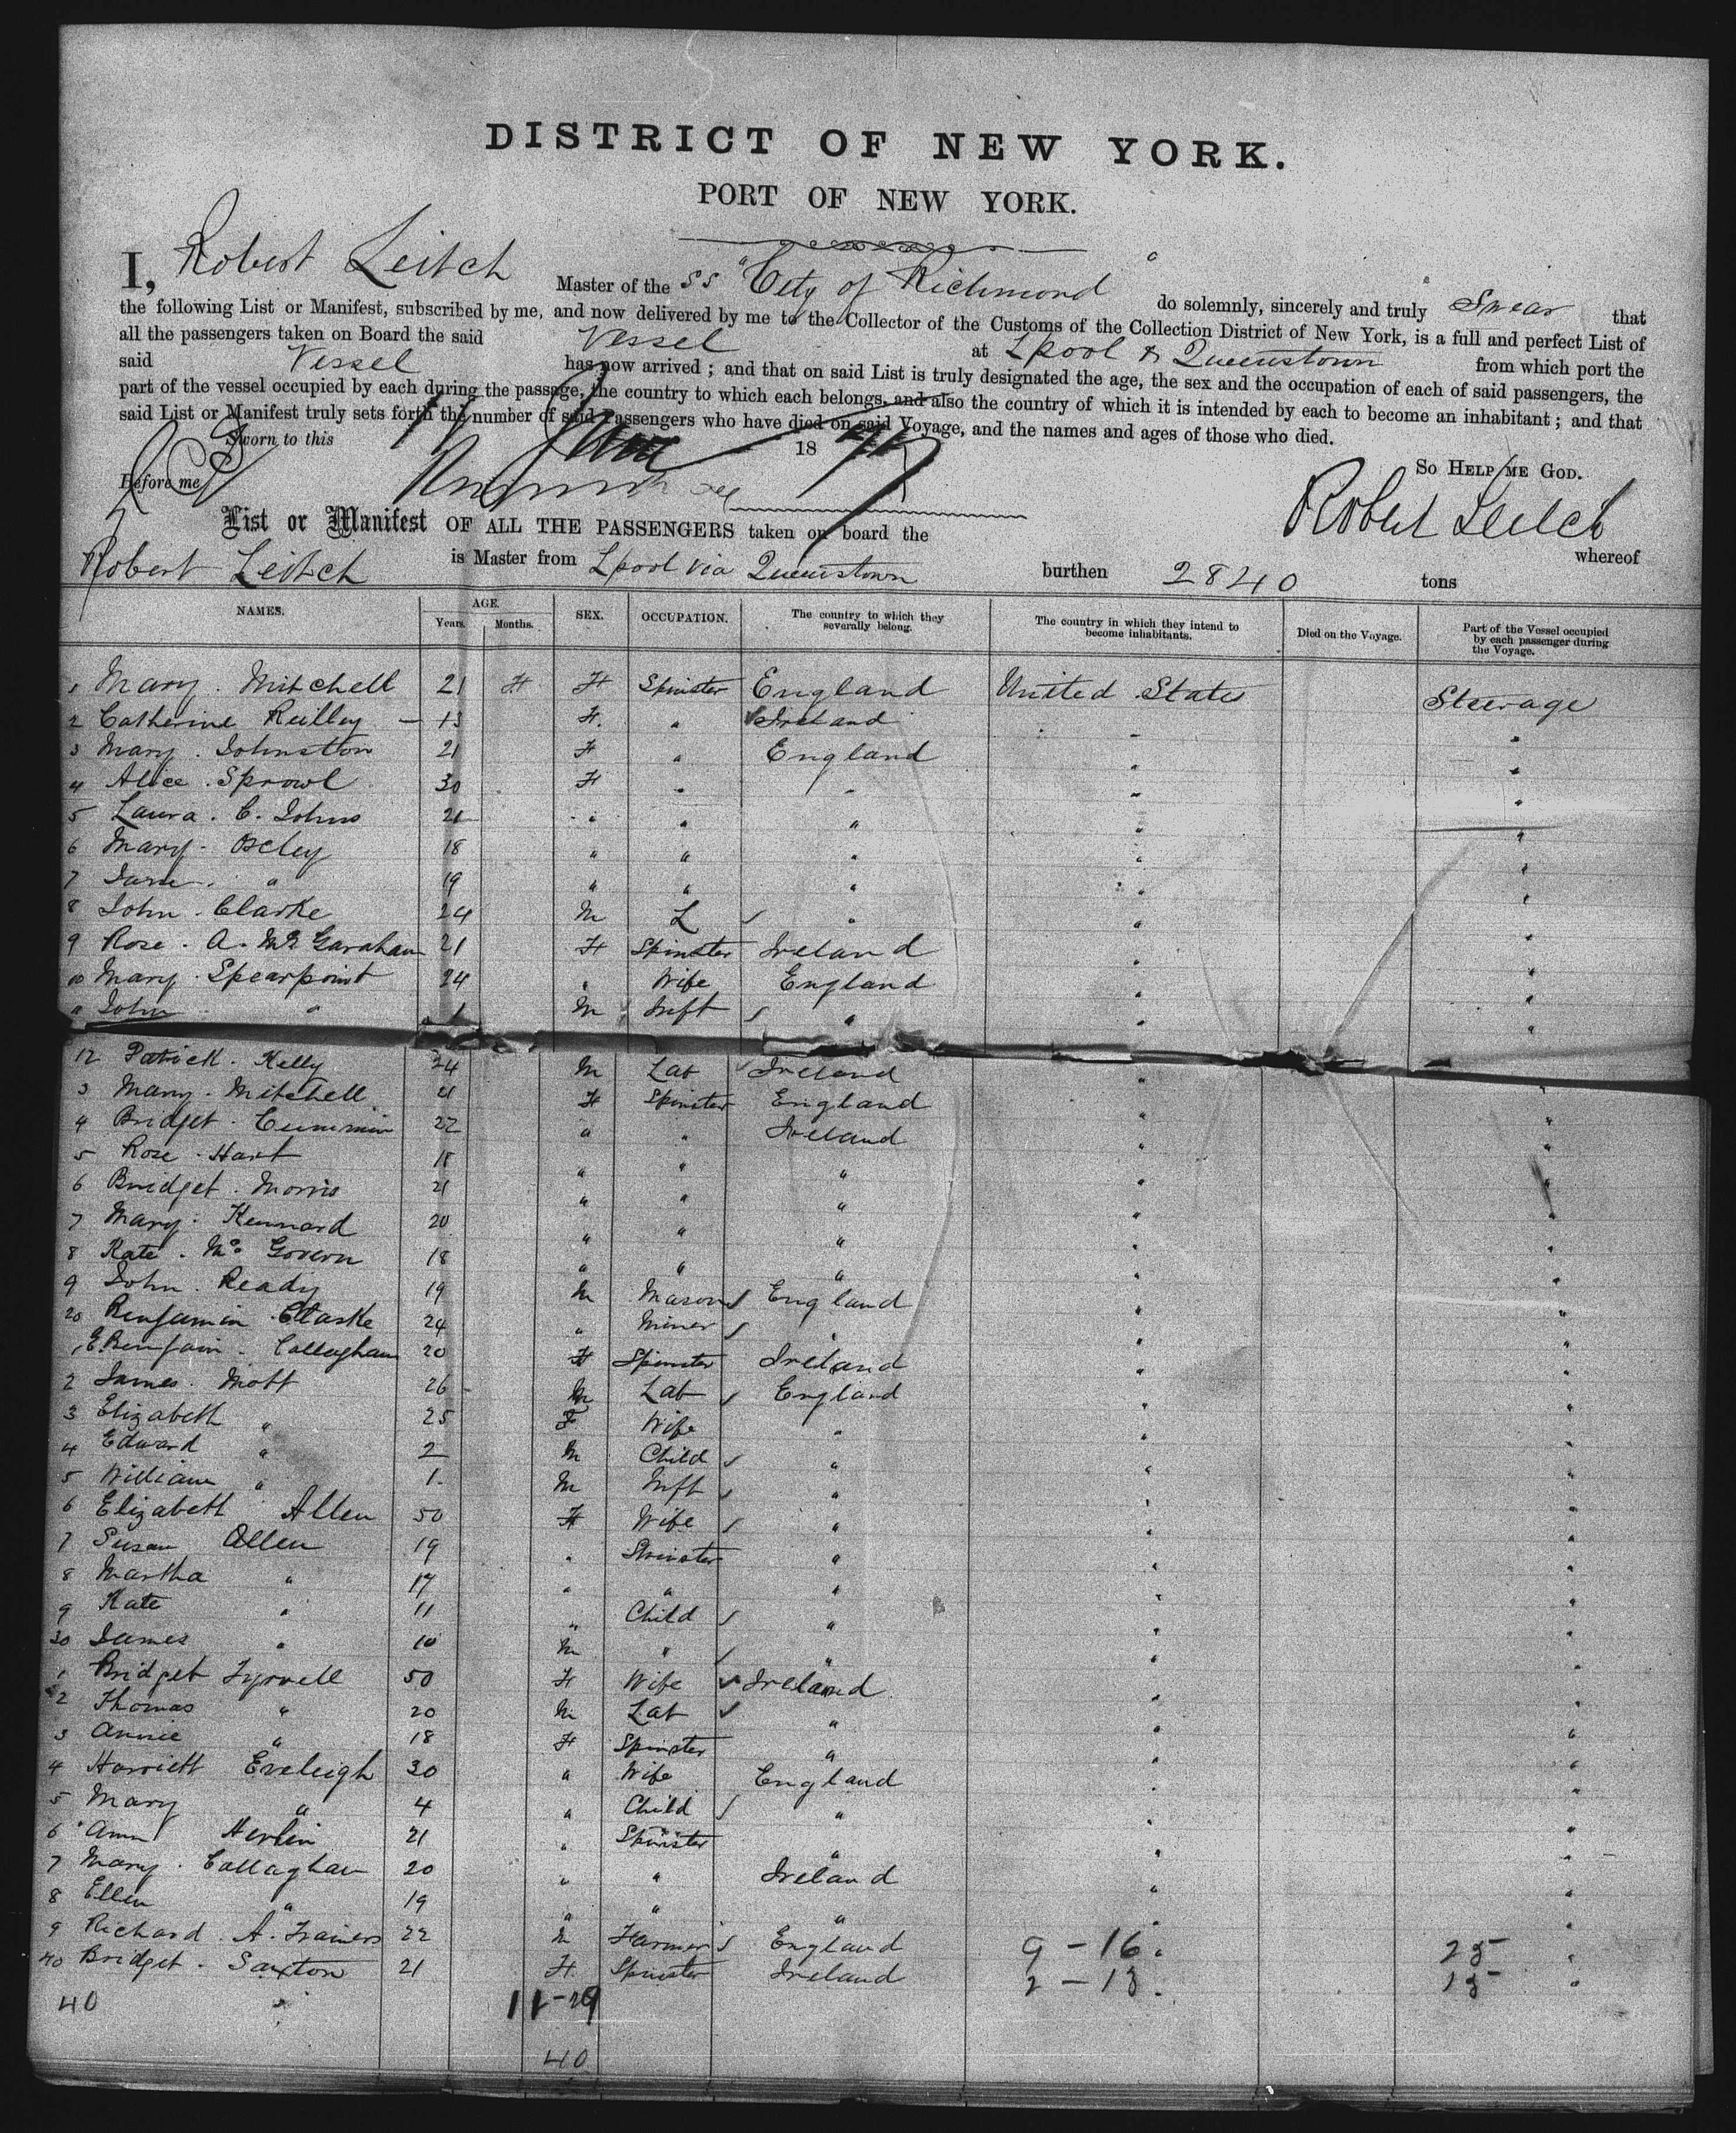 DISTRICT OF NEW YORK.
PORT OF NEW YORK.
I, Robert Leitch Master of the SS "City of Richmond do solemnly, sincerely and truly Swear that
the following List or Manifest, subscribed by me, and now delivered by me to the Collector of the Customs of the Collection District of New York, is a full and perfect List of
all the passengers taken on Board the said Vessel at Lpool & Queenstown from which port the
said Vessel has now arrived; and that on said List is truly designated the age, the sex and the occupation of each of said passengers, the
part of the vessel occupied by each during the passage, the country to which each belongs, and also the country of which it is intended by each to become an inhabitant; and that
said List or Manifest truly sets forth the number of said Passengers who have died on said Voyage, and the names and ages of those who died.
Sworn to this 18
So Help me God.
Before me
Robert Leitch
List or Manifest OF ALL THE PASSENGERS taken on board the whereof
Robert Leitch is Master from Lpool via Queenstown burthen 2840 tons
NAMES. AGE. Years. Months. SEX. OCCUPATION. The country to which they severally belong. The country in which they intend to become inhabitants. Died on the Voyage. Part of the Vessel occupied by each passenger during the Voyage.
1 Mary. Mitchell 21 F Spinster England United States Steerage
2 Catherine Reilley 13 F. " Ireland " "
3 Mary. Johnston 21 F " England " "
4 Alice. Sprowl 30 F " " " "
5 Laura. C. Johns 21 " " " " "
6 Mary. Oxley 18 " " " " "
7 Jane. " 19 " " " " "
8 John. Clarke 24 M L " " "
9 Rose. A. McGarahan 21 F Spinster Ireland " "
10 Mary. Spearpoint 24 " Wife England " "
11 John " 1 M Inft " " "
12 Patrick. Kelly 24 M Lab Ireland " "
3 Mary. Mitchell 21 F Spinster England " "
4 Bridget. Cummin 22 " " Ireland " "
5 Rose. Hart 18 " " " " "
6 Bridget. Morris 21 " " " " "
7 Mary. Kennard 20 " " " " "
8 Kate. Mc Govern 18 " " " " "
9 John. Ready 19 M Mason England " "
20 Benjamin. Clarke 24 " Miner " " "
1 Callaghan 20 F Spinster Ireland " "
2 James. Mott 26 M Lab England " "
3 Elizabeth " 25 F Wife " " "
4 Edward " 2 M Child " " "
5 William " 1. M Inft " " "
6 Elizabeth Allen 50 F Wife " " "
7 Susan Allen 19 " Spinster " " "
8 Martha " 17 " " " " "
9 Kate " 11 " Child " " "
30 James " 10 M " " " "
1 Bridget Tyrrell 50 F Wife Ireland " "
2 Thomas " 20 M Lab " " "
3 Annie " 18 F Spinster " " "
4 Harriett Eveleigh 30 " Wife England " "
5 Mary " 4 " Child " " "
6 Ann 21 " Spinster " " "
7 Mary. Callaghan 20 " " Ireland " "
8 Ellen " 19 " " " " "
9 Richard. A. 22 M Farmer England 9 - 16. 25 "
40 Bridget. Saxton 21 F. Spinster Ireland 2 - 13. 15 "
40 11-29
40